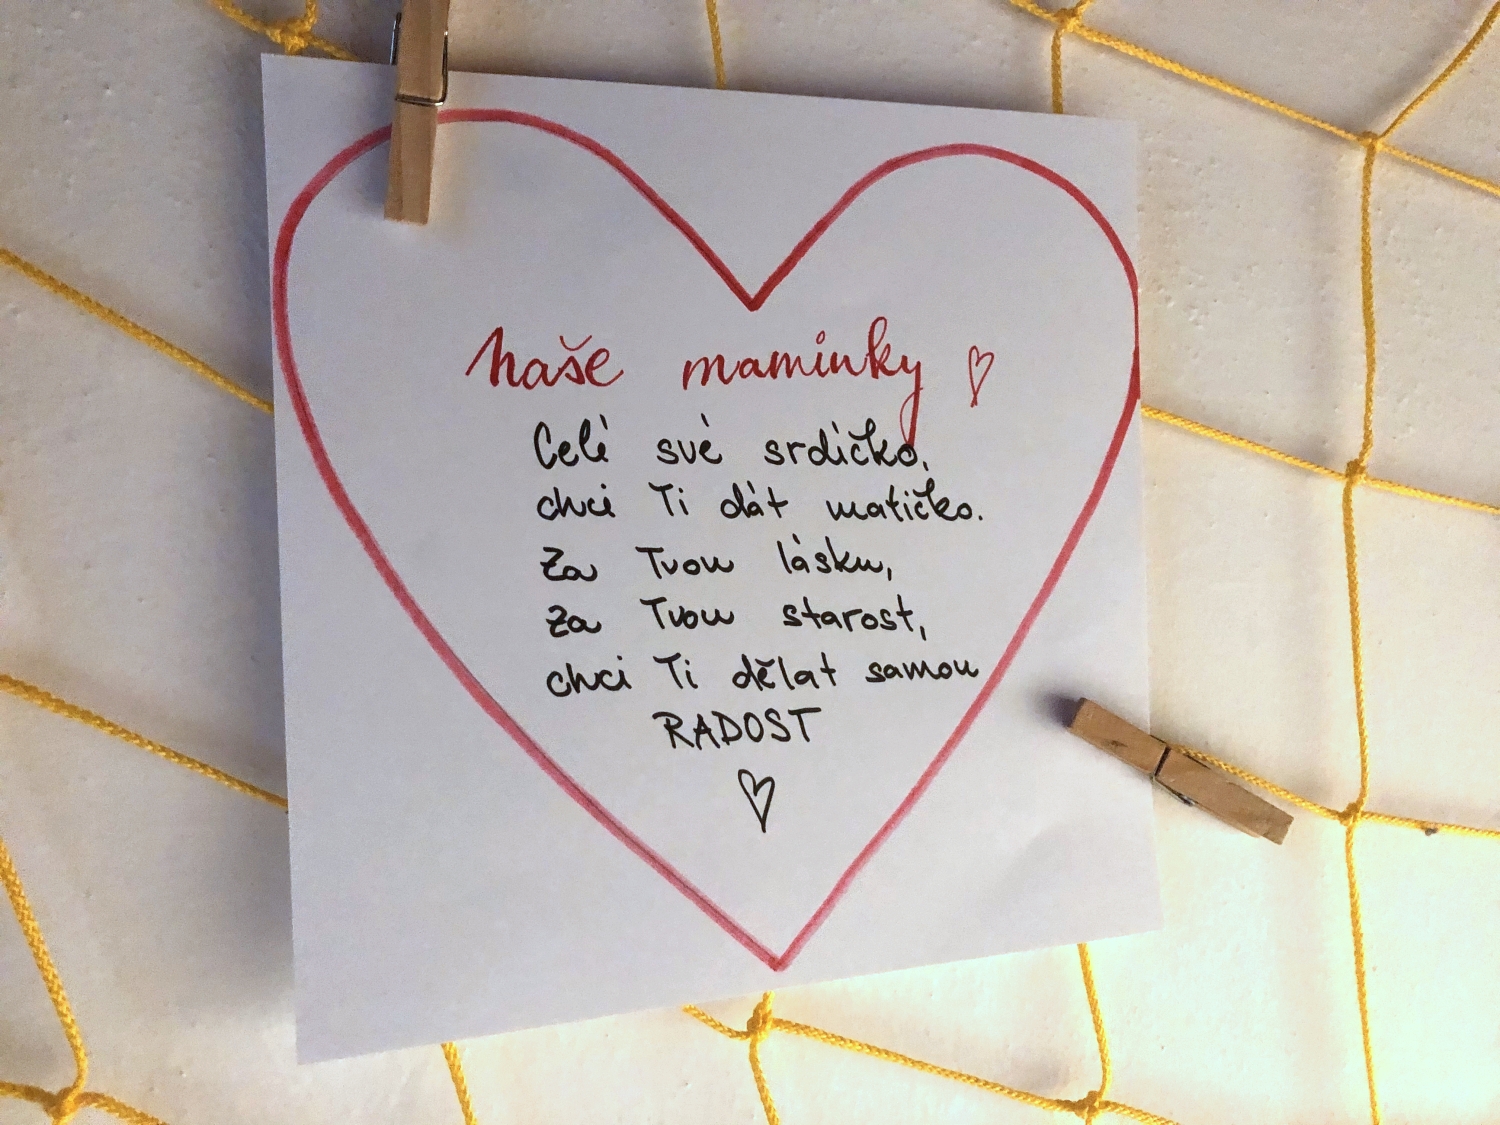 Naše maminky
Celé své srdíčko,
chci Ti dát matičko.
Za Tvou lásku,
za Tvou starost,
chci Ti dělat samou
RADOST